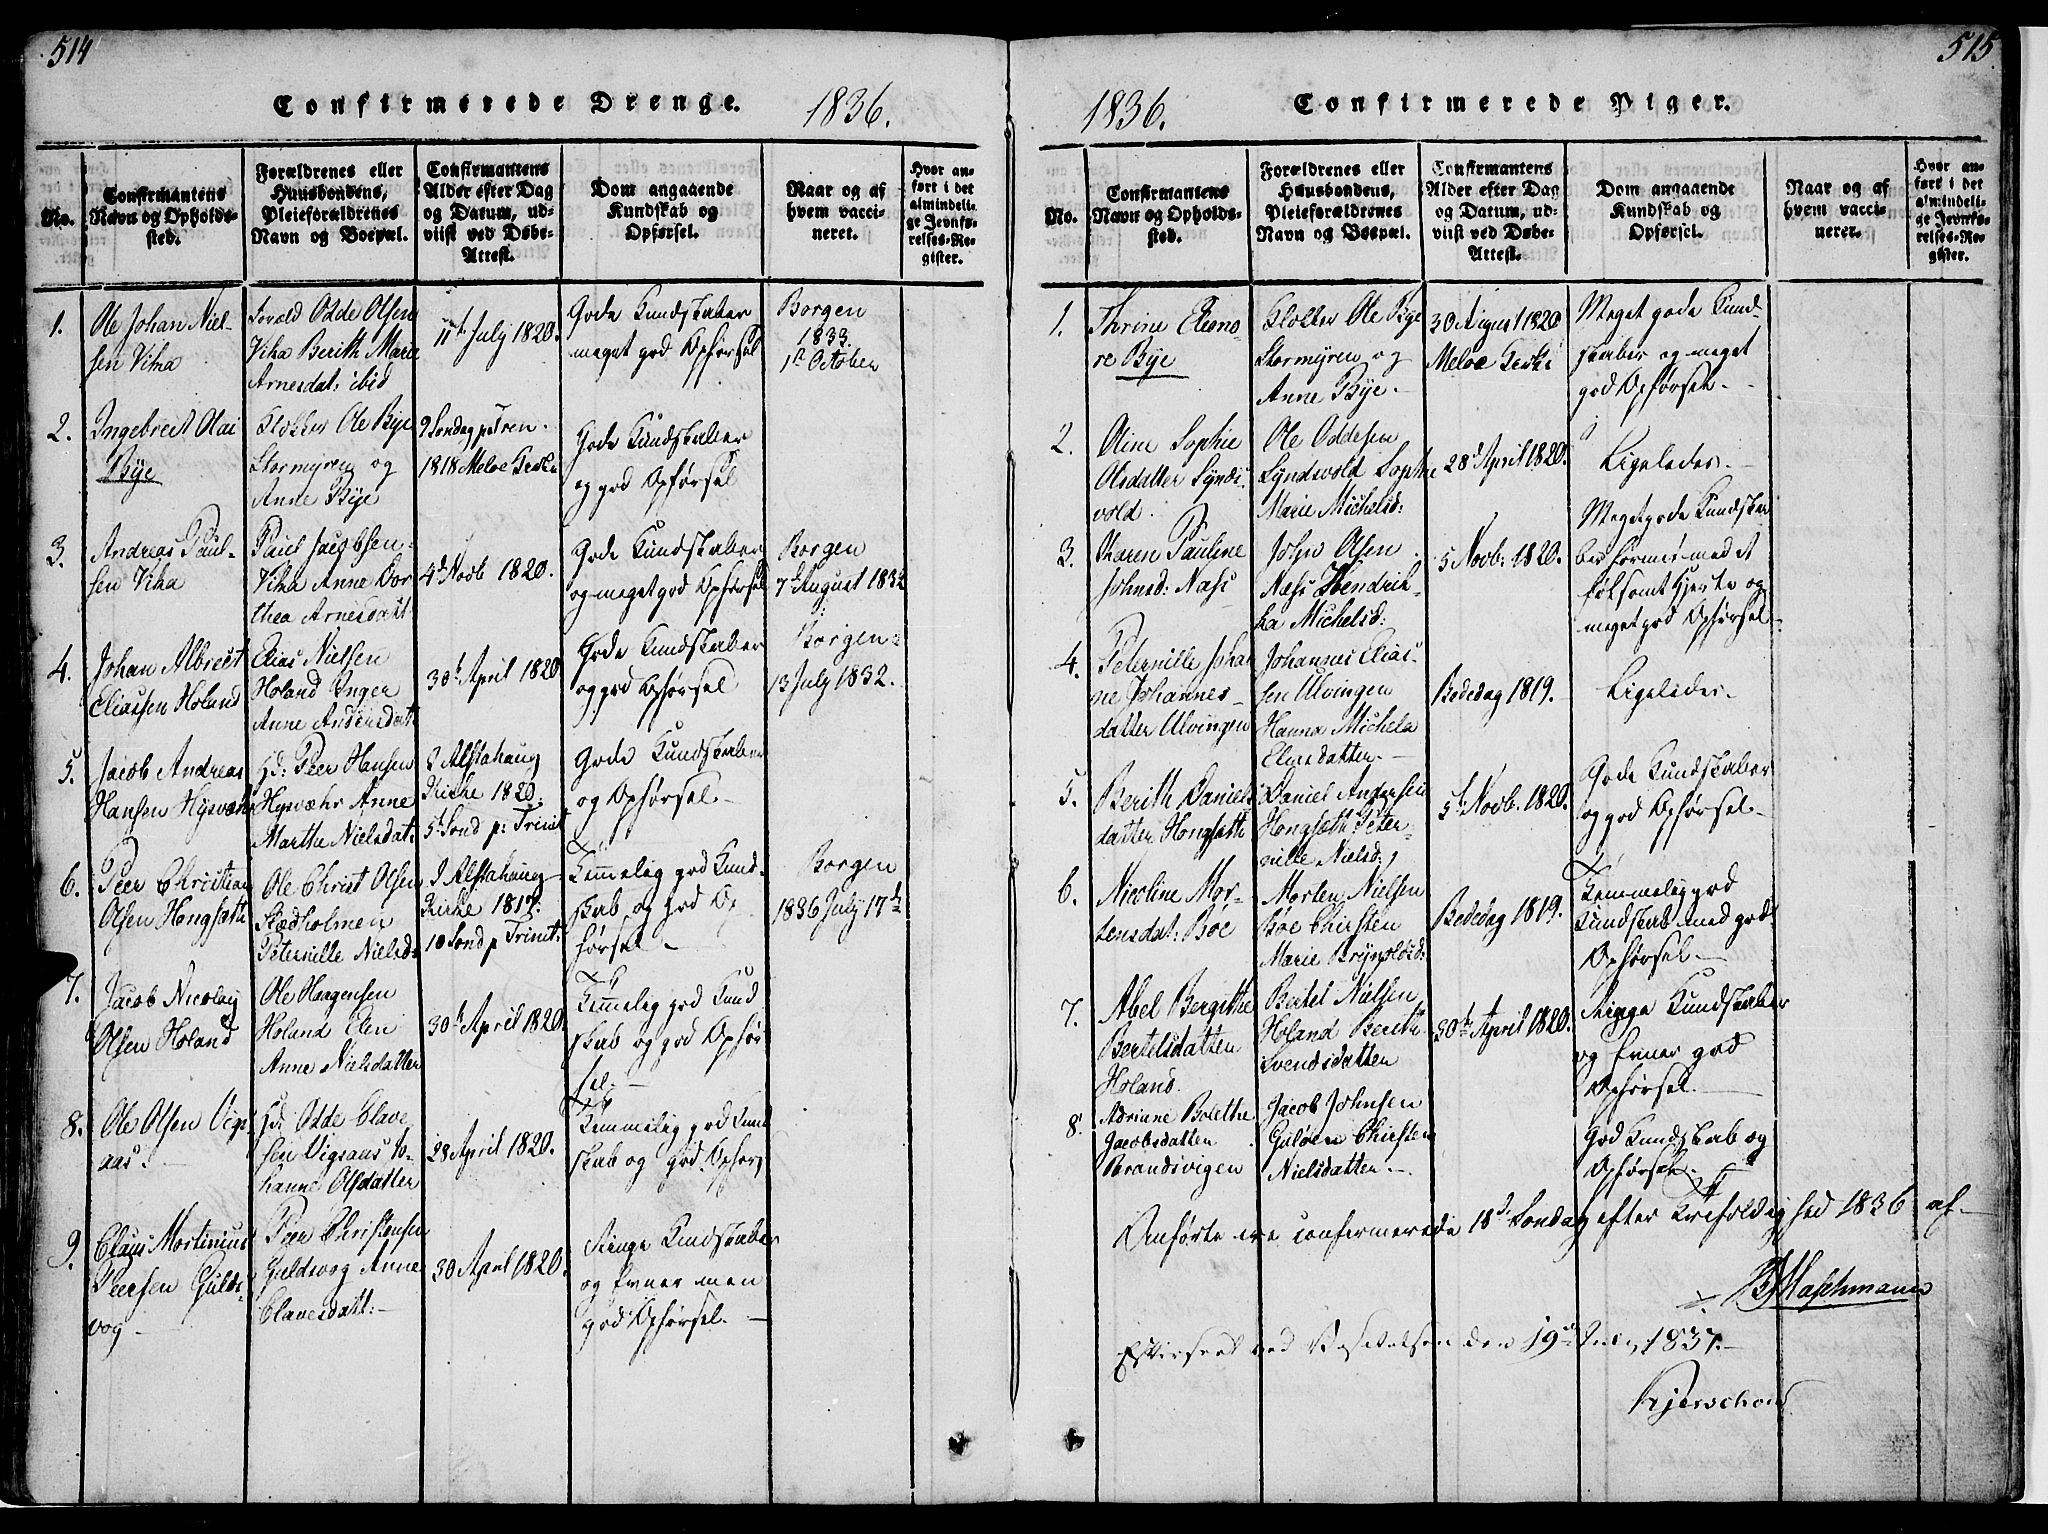 514
Confirmerede Drenge.
1836.
No.
Confirmantens
Navn og Opholds-
sted.
Forældrenes eller
Huusbondens,
Pleieforældrenes
Navn og Boepæl.
Confirmantens
Alder efter Dag
og Datum, ud-
viist ved Døbe-
Attest.
Dom angaaende
Kundskab og
Opførsel.
Naar og af
hvem vacci-
neret.
Hvor an-
ført i det
almindeli-
ge Jevnfø-
relses-Re-
gister.
1.
Ole Johan Niel-
sen Viha
Odde Olsen
Viha Berith Marie
Arnesdat: ibid
11t July 1820.
Gode Kundskaber
meget god Opførsel
Borgen
1833.
1n October
2.
Ingebrect Olai
Bye
Klokker Ole Bye
Stormyren og
Anne Bye
9 Sondag p: Tren.
1818 Meløe
Gode Kundskaber
og god Opførsel
3.
Andreas Paul-
sen Viha
Paul Jacobsen
Viha Anne Dor
thea Arnesdatt
4d Novb 1820.
Gode Kundskaber
og meget god Opførsel
Borgen
7d August 1832
4.
Johan Albrect
Eliassen Holand
Elias Nielsen
Holand Inger
Anne Andersdatt
30t April 1820
Gode Kundskaber
og god Opførsel
Borgen
13 July 1832.
5.
Jacob Andreas
Hansen Hysvæhr
Sd: Peer Hansen
Hysvæhr Anne
Marthe Nielsdat:
I Alstahaug
Kirke 1820.
5t Sond p: Trinit
Gode Kundskaber
og Opførsel.-
6.
Peer Christian
Olsen Hongsæth
Ole Christ Olsen
Skedholmen
Peternille Nielsd:
I Alstahaug
Kirke 1817.
10 Sond p Trinit:
Temmelig god Kund-
skab og god Op
førsel -
Borgen
1836 July 17d
7.
Jacob Nicolay
Olsen Holand
Ole Haagensen
Holand Elen
Anne Nielsdatter
30t April 1820
Temmelig god Kund
skab og god Opfør
sel.-
8.
Ole Olsen Vigs
aas.
Sd: Odde Clave
sen Vigsaas Jo-
hanne Olsdatter
28 April 1820.
Temmelig god Kund
skab og god Opførs
9.
Claus Mortinius
Peersen Gulds-
vog -
Peer Christensen
Guldsvog Anne
Clavesdatt: -
30 April 1820.
Ringe Kundskaber
og Evner men
god Opførsel. -
515
1836.
Confirmerede Piger.
No.
Confirmantens
Navn og Opholds-
sted.
Forældrenes eller
Huusbondens,
Pleieforældrenes
Navn og Boepæl.
Confirmantens
Alder efter Dag
og Datum, ud-
viist ved Døbe-
Attest.
Dom angaaende
Kundskab og
Opførsel.
Naar og af
hvem vacci-
nerer.
Hvor an-
ført i det
almindeli-
ge Jevnfø-
relses-Re-
gister.
1.
Thrine Eleono
re Bye
Klokker Ole Bye
Stormyren og
Anne Bye -
30 August 1820
Meløe
Meget gode Kund-
skaber og meget
god Opførsel. -
2.
Oline Sophie
Olsdatter Syndes
vold.
Ole Oddesen
Syndsvold Sophie
Marie Michelsd:
28d April 1820.
Ligeledes. -
3.
Karen Pauline
Johnsd: Næss
John Olsen
Næss Hendrik-
ka Michelsd:
5 Novb: 1820.
Meget gode Kundska
ber med et
følsomt Hjerte og
meget god Opførsel. -
4.
Peternille Johan
ne Johannes-
datter Ulvingen
Johannes Elias-
sen Ulvingen
Hanna Michela
Elinsdatter. -
Bededag 1819.
Ligeledes.
5.
Berith Daniels
datter Hongsæth
Daniel Andersen
Hongsæth Peter-
nille Nielsd:
5t Novb. 1820.
Gode Kundskaber
og god Opførsel. -
6.
Nicoline Mor-
tensdat: Bøe
Morten Nielsen
Bøe Chirsten
Marie Brynoldsd:
Bededag 1819.
Temmelig god
Kundskab med god
Opførsel. -
7.
Abel Bergithe
Bertelsdatten
Holand.
Bertel Nielsen
Holand Berith
Svendsdatten
30t April 1820.
Ringe Kundskaber
og Evner god
Opførsel. -
8.
Adriane Bolethe
Jacobsdatten
Brandsvigen
Jacob Johnsen
Guløen Chirsten
Nielsdatten. -
God Kundskab og
Opførsel. -
Anførte ere confirmerede 18d Sondag efter Trefoldighed 1836 af -
Haschmann
Estirseet ved Visitatsen den 19de July 1837. -
Kjerschow